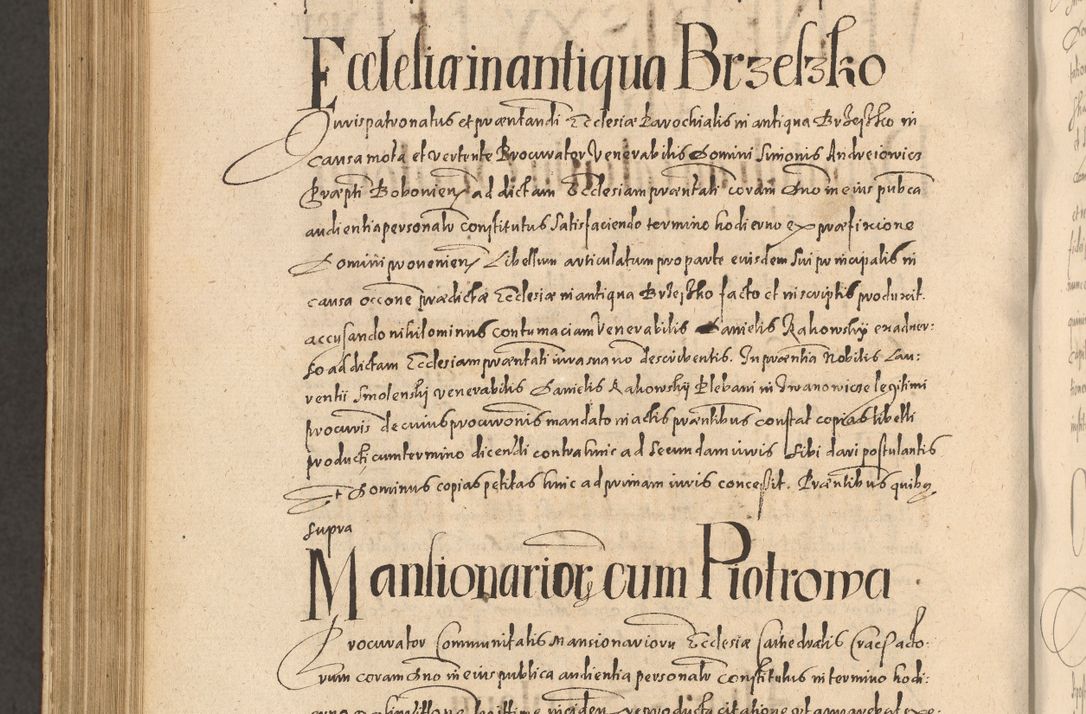 Ecclesia in antiqua Brzesko
Jurispatronatus et præntandi Ecclesiæ Parochialis in antiqua Brzesko in
causa mota et vertente Procurator Venerabilis Domini Simonis Andreiowicz
Præpti Bobonien ad dictam Ecclesiam præntati coram Dno in eius pubca
audientia personalr constitutus satisfaciendo termino hodierno ex præfixione
Domini provenien Libellum articulatum pro parte eiusdem sui principalis in
causa occone prædictæ Ecclesiæ in antiqua Brzesko facto et in scriptis produxit
accusando nihilominus contumaciam Venerabilis Danielis Rakowskij ex adver:
so ad dictam Ecclesiam præntati iura sua no describentis. In præntia Nobilis Lau:
rentii Smolenskj venerabilis Danielis Rakowskij Plebani in Iwanowicze legitimi
procuris de cuius procuronis mandato in actis præntibus constat copias libelli
producti cum termino dicendi contra hinc ad secundam iuris sibi dari postulantis
Et Dominus copias petitas hinc ad primam iuris concessit. Præntibus quibq
supra
Mansionarior cum Piotrowa
Procurator Communitatis Mansionarioru Ecclesiæ Cathedralis Crac Acto:
rum coram Dno in eius publica audientia personalr constitutus in termino hodi: